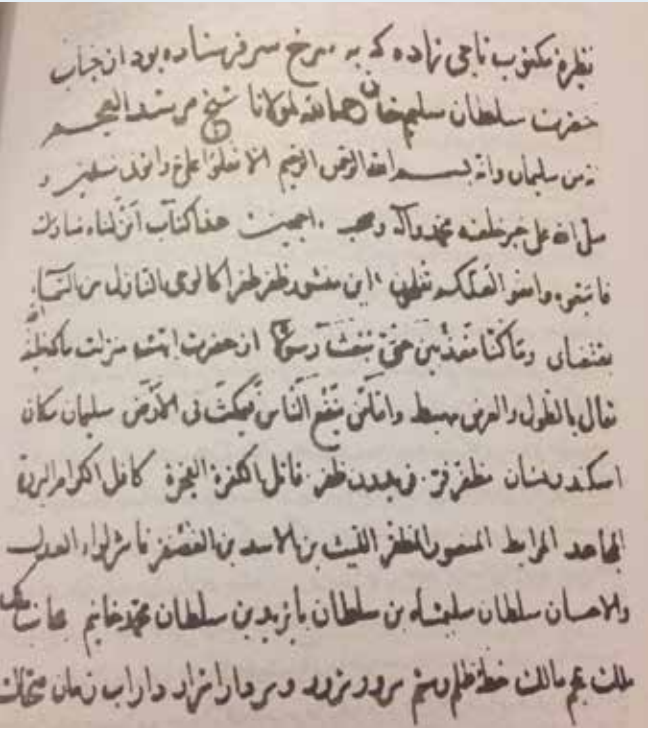 نظیره مکتوب تاجی زاده که به سرخ سر فرستاده بود از جناب
حضرت سلطان سلیم خان هماالله لمولانا شیخ مرشد العجم
انه من سلیمان وانه بسم الله الرحمن الرحیم الا تعلوا علی واتونی مسلمین و
صلی الله علی خیر خلقه محمد وآله وصحبه اجمعین هذا کتاب انزلناه مبارک
فاتبعوه واتقوا لعلکم این منشور ظفر طغرا کالوحی النازل من السماء
بمقتضای وما کنا معذبین حتی نبعث رسولا از حضرت منزلت ما خلیفة الله
تعالی بالطول والعرض مهبط واما ما ینفع الناس فیمکث فی الارض سلیمان مکان
اسکندر نشان مظفر فر فریدون ظفر قاتل الکفرة الفجرة کافل الکرام البررة
المجاهد المرابط المنصور المظفر اللیث بن الاسد بن الغضنفر ناشر لواء العدل
والاحسان سلطان سلیمشاه بن سلطان بایزید بن سلطان محمد خانیم بجانب
ملک عجم مالک خطه ظلم وستم سرور شرور وسردار اشرار داراب زمان ضحاک